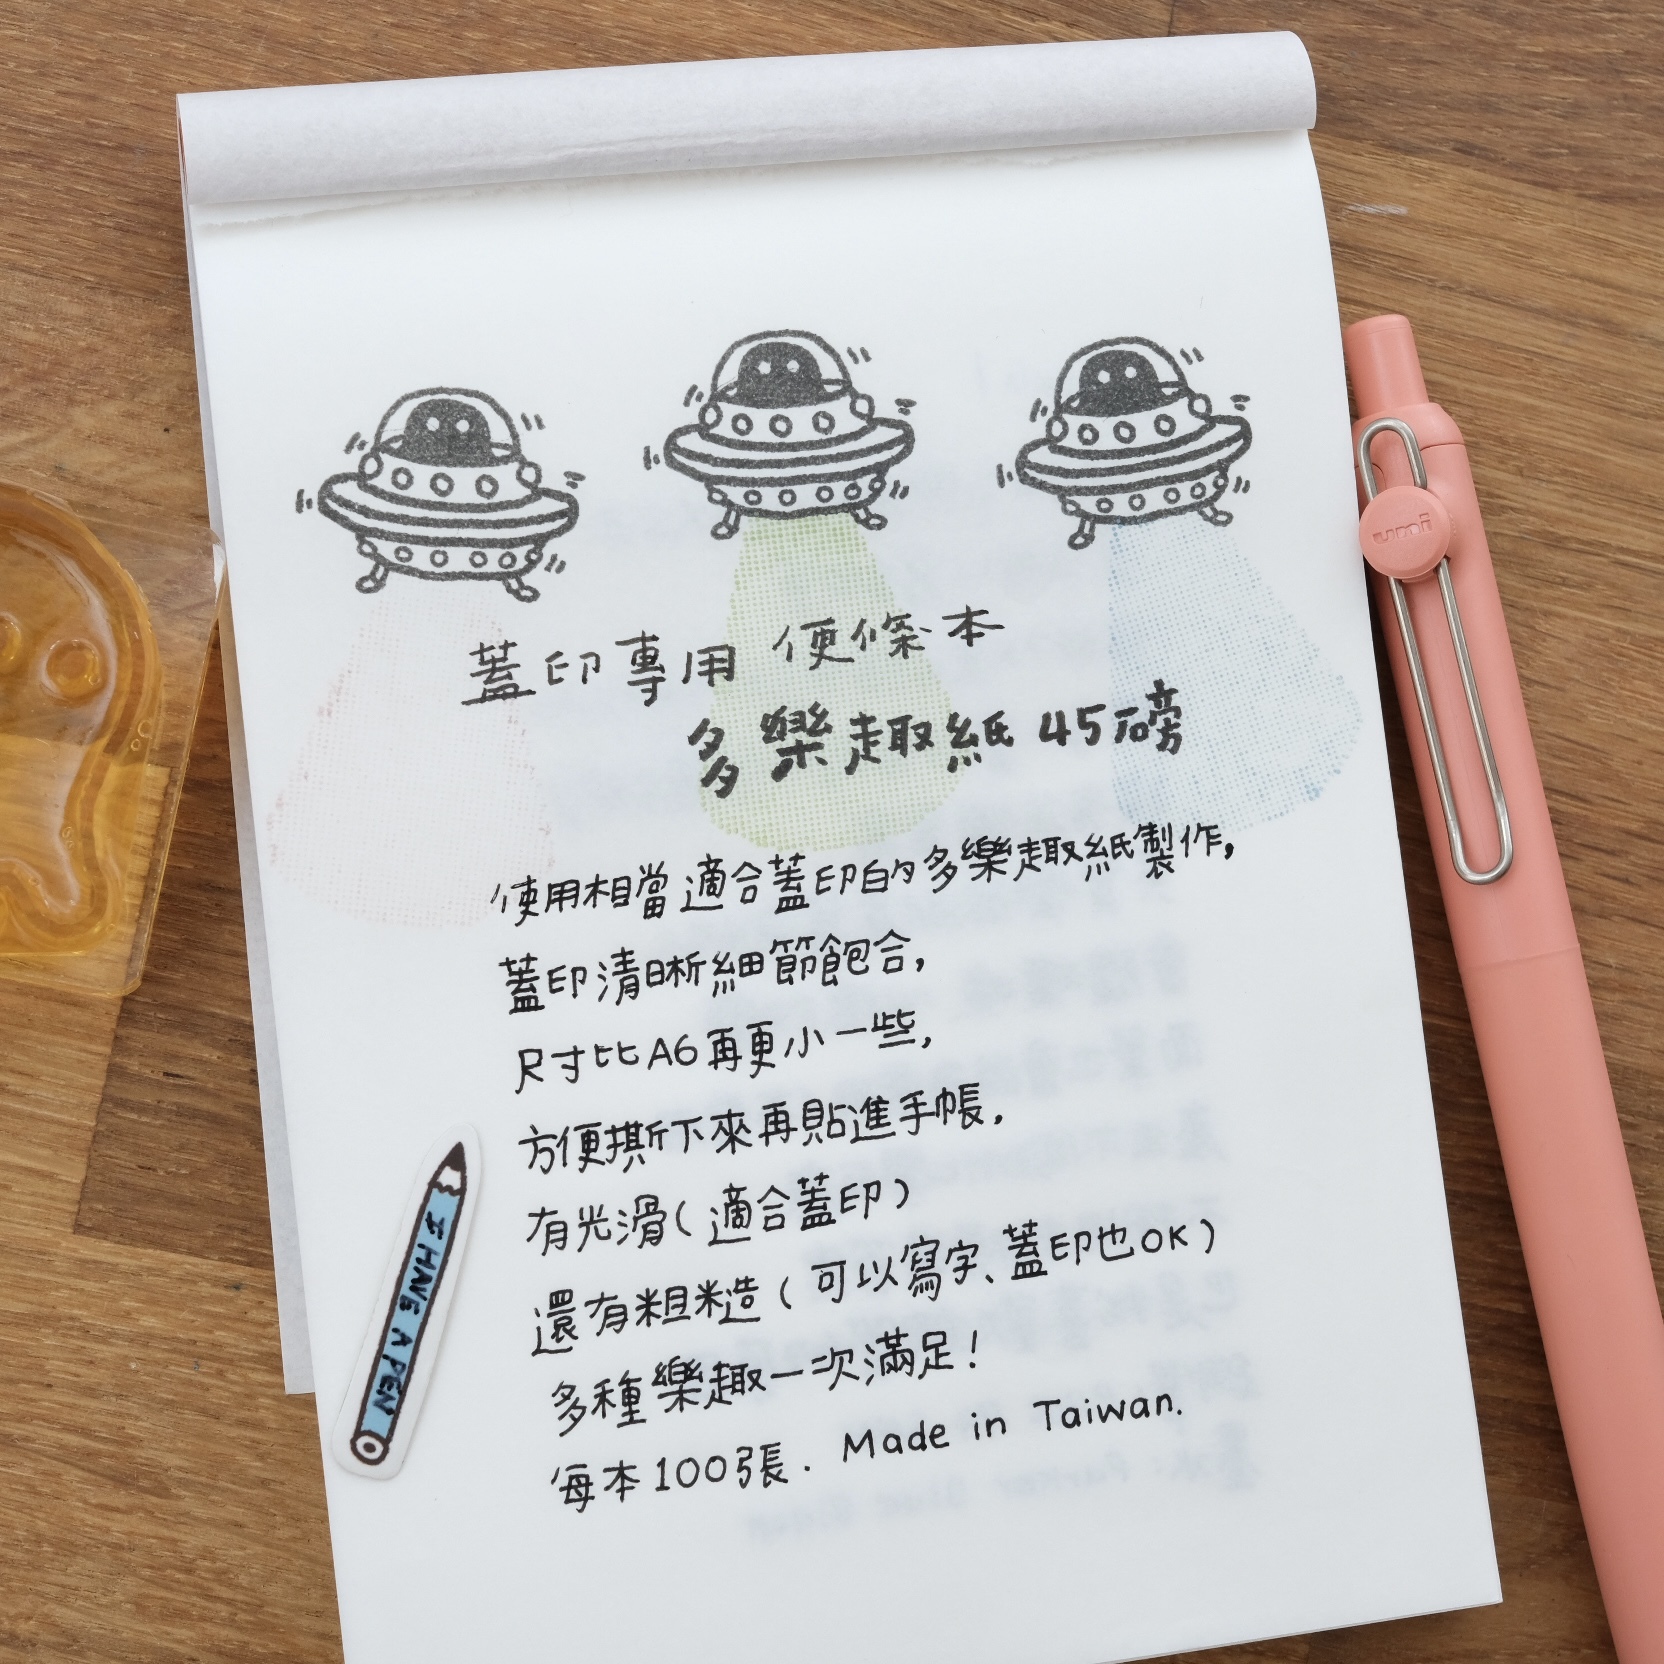 蓋印專用 便條本
多樂趣紙 45磅
使用相當適合蓋印的多樂趣紙製作,
蓋印清晰細節飽合,
尺寸比A6再更小一些,
方便撕下來再貼進手帳,
有光滑(適合蓋印)
還有粗糙(可以寫字、蓋印也OK)
多種樂趣一次滿足!
每本100張. Made in Taiwan.
I HAVE A PEN
uni